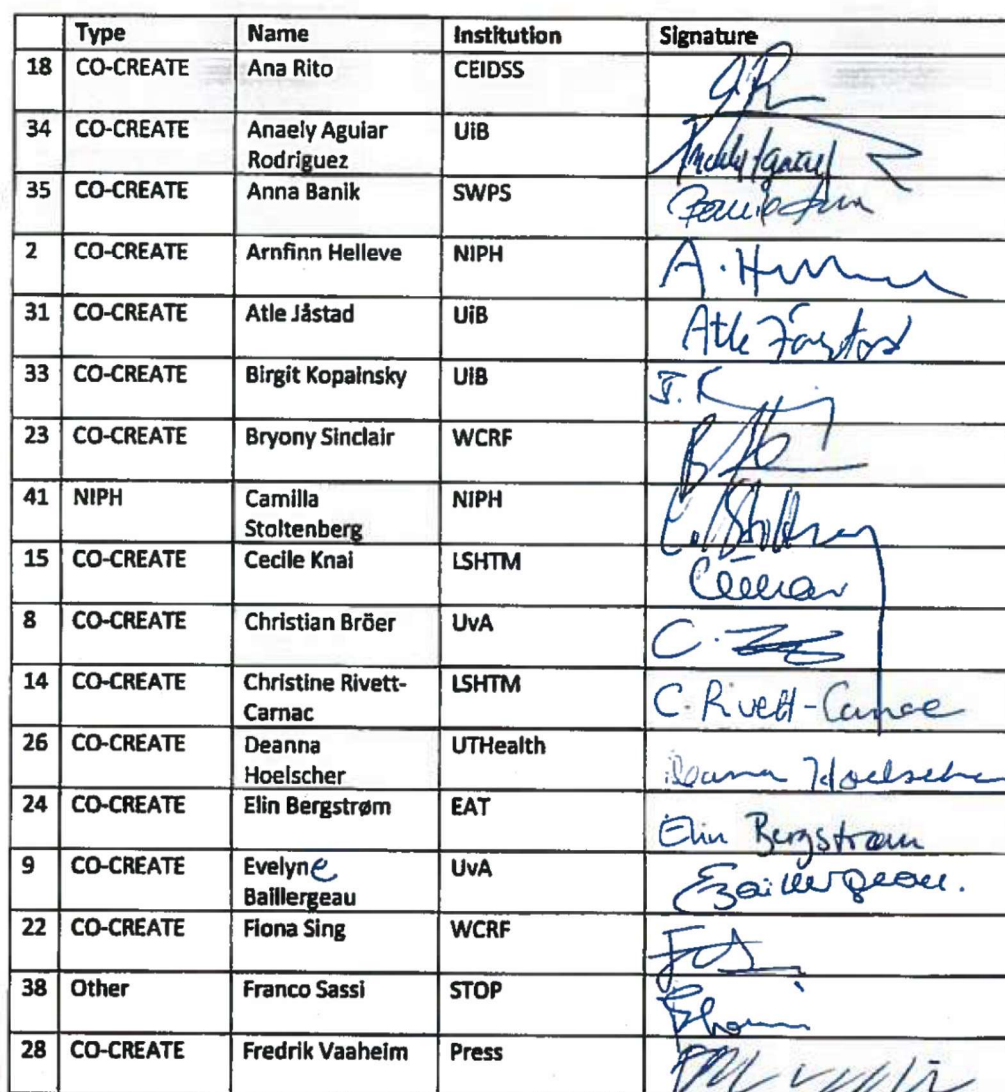 Type Name Institution Signature
18 CO-CREATE Ana Rito CEIDSS
34 CO-CREATE Anaely Aguiar UiB
Rodriguez
35 CO-CREATE Anna Banik SWPS
2 CO-CREATE Arnfinn Helleve NIPH A. H
31 CO-CREATE Atle Jåstad UiB Atle Jåstad
33 CO-CREATE Birgit Kopainsky UiB
23 CO-CREATE Bryony Sinclair WCRF
41 NIPH Camilla NIPH
Stoltenberg
15 CO-CREATE Cecile Knai LSHTM
8 CO-CREATE Christian Bröer UvA C.
14 CO-CREATE Christine Rivett- LSHTM C. Rivett-Carnac
Carnac
26 CO-CREATE Deanna UTHealth Deanna Hoelscher
Hoelscher
24 CO-CREATE Elin Bergstrøm EAT Elin Bergstrøm
9 CO-CREATE Evelyne UvA EBaillergeau.
Baillergeau
22 CO-CREATE Fiona Sing WCRF
38 Other Franco Sassi STOP
28 CO-CREATE Fredrik Vaaheim Press